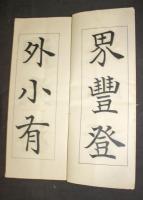 界豐登
外小有